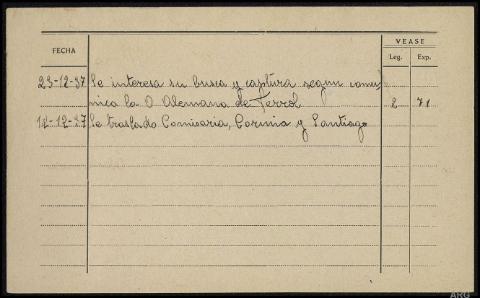 FECHA
VEASE
Leg. Exp.
23-12-37 Se interesa su busca y captura segun comu-
nica la O Alemana de Ferrol 2 71
12-12-37 Se traslado Comisaria, Coruña y Santiago
ARG